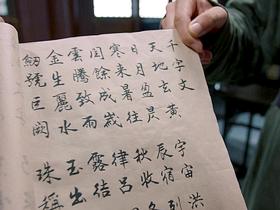 千字文
天地玄黃
日月盈昃
寒來暑往
閏餘成歲
雲騰致雨
金生麗水
劒號巨闕
宇宙洪
辰宿列
秋收冬
律呂
露結
玉出
珠稱